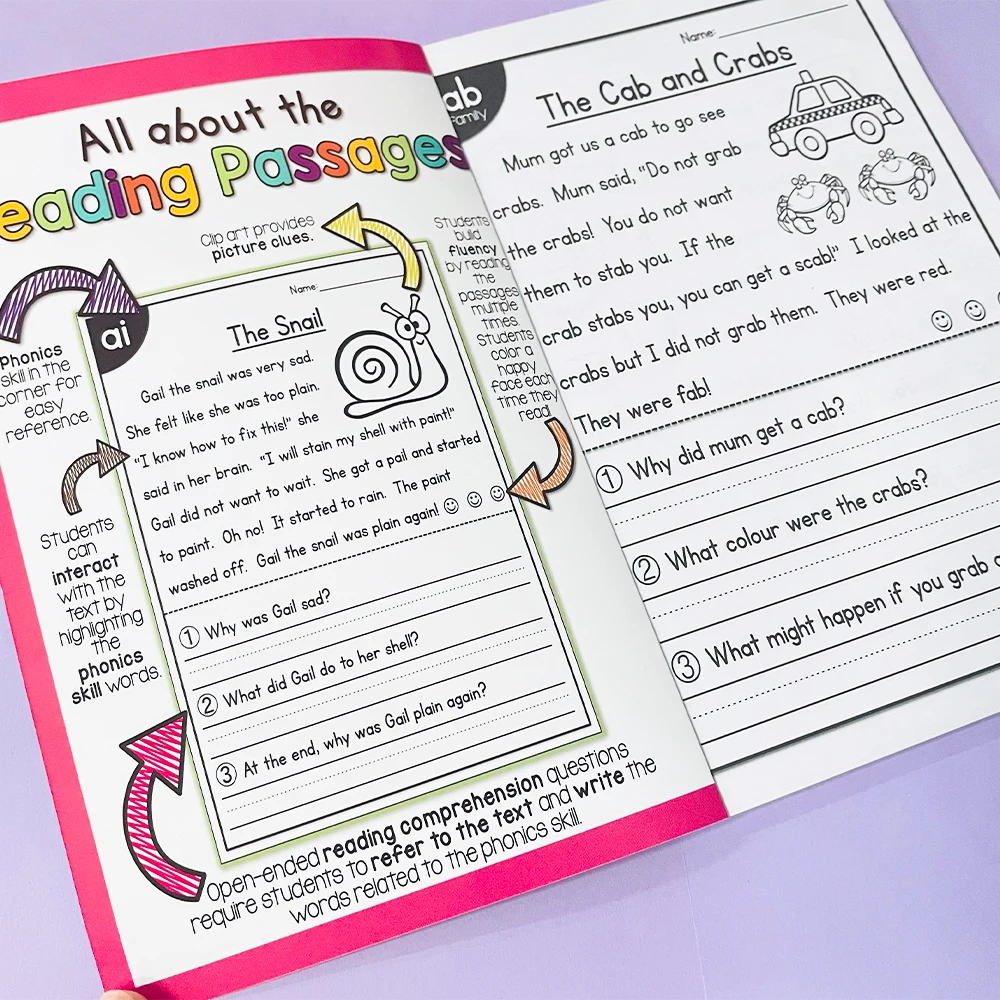 All about the
eading Passages
Clip art provides
picture clues.
Students
build
fluency
by reading
the
passages
multiple
times.
Students
color a
happy
face each
time they
read!
Phonics
skill in the
corner for
easy
reference.
Students
can
interact
with the
text by
highlighting
the
phonics
skill words.
Name:
ai
The Snail
Gail the snail was very sad.
She felt like she was too plain.
"I know how to fix this!" she
said in her brain. "I will stain my shell with paint!"
Gail did not want to wait. She got a pail and started
to paint. Oh no! It started to rain. The paint
washed off. Gail the snail was plain again!
1 Why was Gail sad?
2 What did Gail do to her shell?
3 At the end, why was Gail plain again?
Open-ended reading comprehension questions
require students to refer to the text and write the
words related to the phonics skill.
Name:
ab
family
The Cab and Crabs
Mum got us a cab to go see
crabs. Mum said, "Do not grab
the crabs! You do not want
them to stab you. If the
crab stabs you, you can get a scab!" I looked at the
crabs but I did not grab them. They were red.
They were fab!
1 Why did mum get a cab?
2 What colour were the crabs?
3 What might happen if you grab